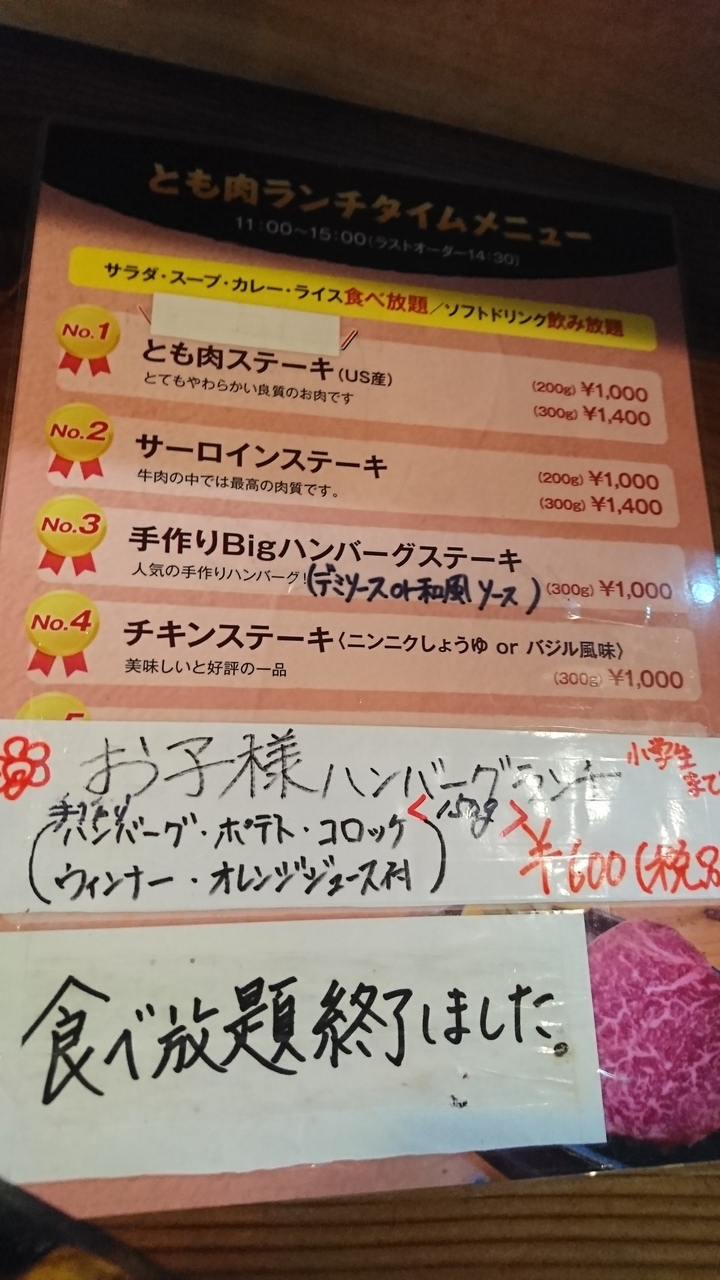 とも肉ランチタイムメニュー
11:00~15:00(ラストオーダー14:30)
サラダ・スープ・カレー・ライス食べ放題/ソフトドリンク飲み放題
No.1
とも肉ステーキ(US産)
とてもやわらかい良質のお肉です
(200g) ¥1,000
(300g) ¥1,400
No.2
サーロインステーキ
牛肉の中では最高の肉質です。
(200g) ¥1,000
(300g) ¥1,400
No.3
手作りBigハンバーグステーキ
人気の手作りハンバーグ!(デミソースor和風ソース) (300g) ¥1,000
No.4
チキンステーキ〈ニンニクしょうゆ or バジル風味〉
美味しいと好評の一品
(300g) ¥1,000
お子様ハンバーグランチ 小学生まで
手作り <150g>
(ハンバーグ・ポテト・コロッケ
ウィンナー・オレンジジュース付) ¥600(税
食べ放題終了しました。